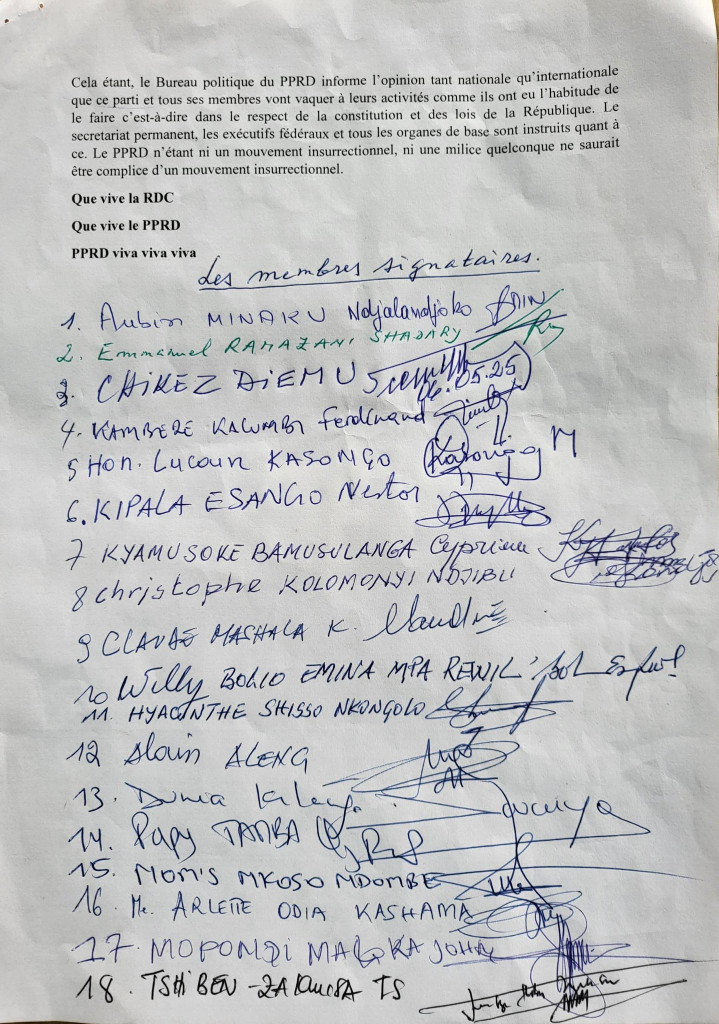 Cela étant, le Bureau politique du PPRD informe l'opinion tant nationale qu'internationale
que ce parti et tous ses membres vont vaquer à leurs activités comme ils ont eu l'habitude de
le faire c'est-à-dire dans le respect de la constitution et des lois de la République. Le
secretariat permanent, les exécutifs fédéraux et tous les organes de base sont instruits quant à
ce. Le PPRD n'étant ni un mouvement insurrectionnel, ni une milice quelconque ne saurait
être complice d'un mouvement insurrectionnel.
Que vive la RDC
Que vive le PPRD
PPRD viva viva viva
Les membres signataires.
1. Aubin MINAKU Ndjalandjoko
2. Emmanuel RAMAZANI SHADARY
3. CHIKEZ DIEMU
06.05.25
4. KAMBERE KALUMBI Ferdinand
5 Hon. Lucain KASONGO
6. KIPALA ESANGO Nestor
7 KYAMUSOKE BAMUSULANGA Cyprien
8 Christophe KOLOMONYI NDJIBU
9 CLAUDE MASHALA K.
10 Willy BOLIO EMINA MPA REWIL
11. HYACINTHE SHISSO NKONGOLO
12 Alain ALENG
13. Dunia
14. Papy TAMBA
15. MOMIS MKOSO NDOMBE
16. Me. ARLETTE ODIA KASHAMA
17. MOPONDI JOHN
18. TSHIBEN